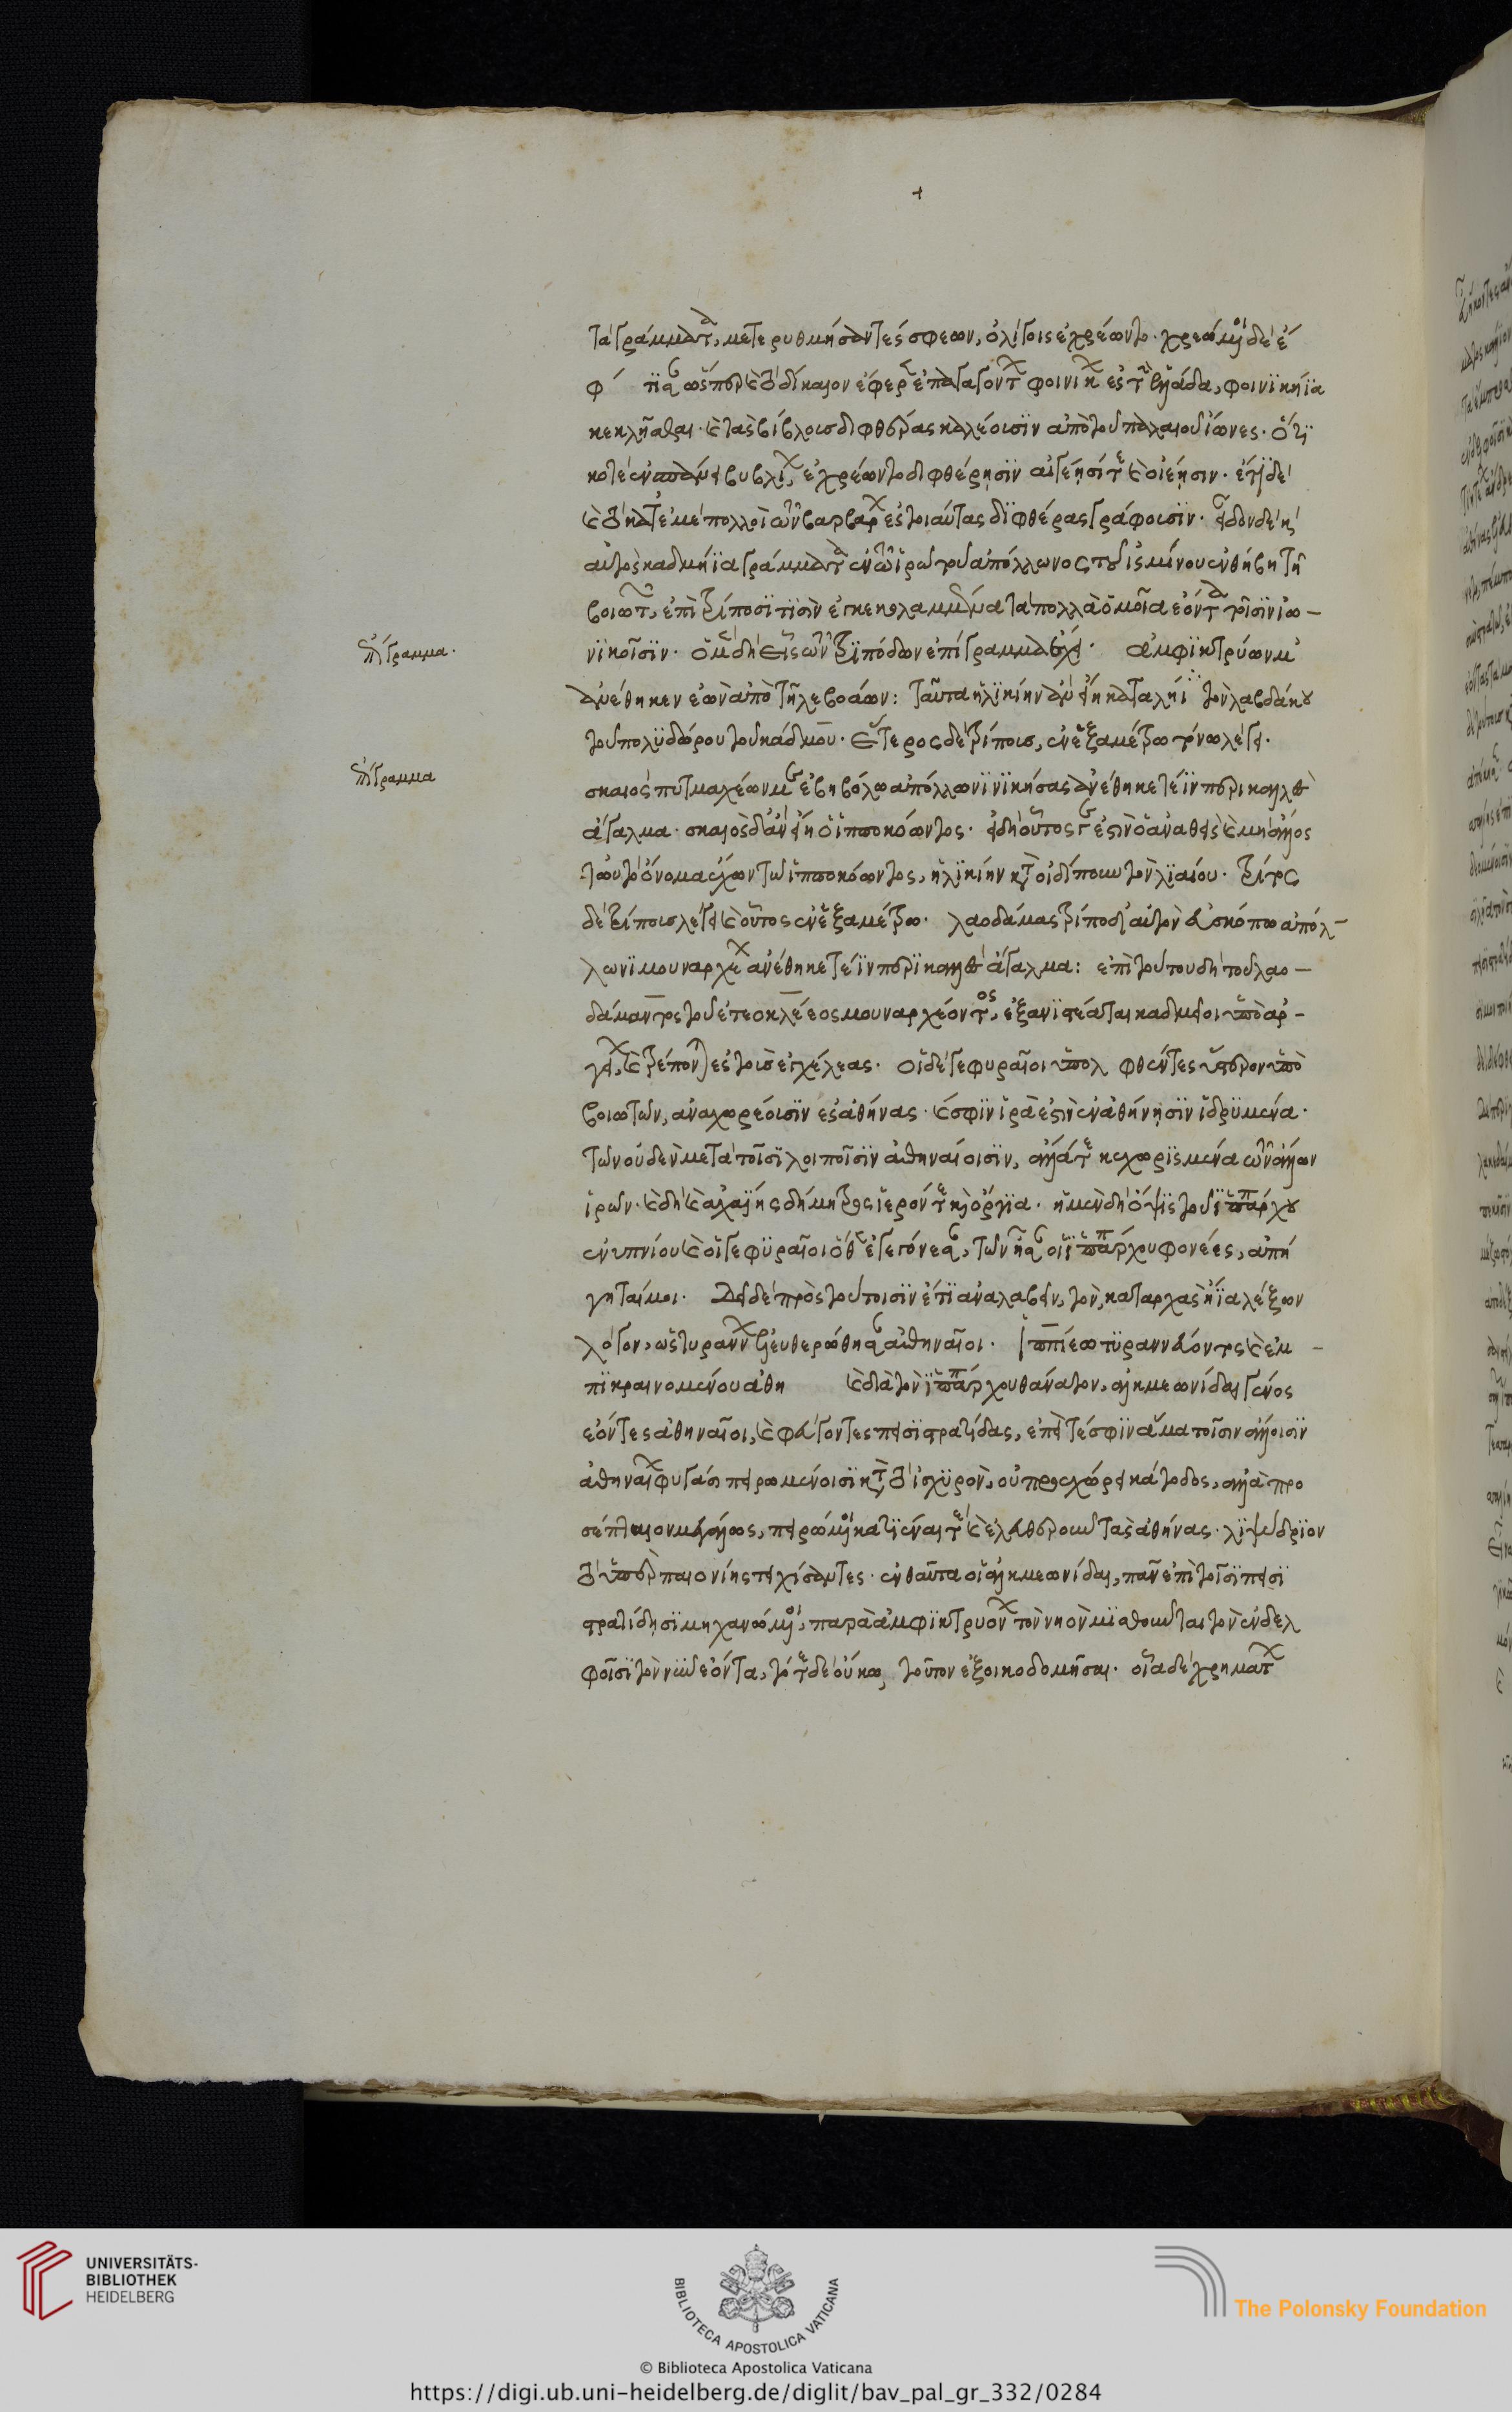 +
τὰ γράμματα, μετερυθμήσαντές σφεων, ὀλίγοις ἐχρέωντο. χρεώμενοι δὲ ἐ
φ τισαν ὥσπερ καὶ τὸ δίκαιον ἔφερε ἐπαγαγόντων φοινίκων ἐς τὴν ἑλλάδα, φοινϊκήϊα
κεκλῆσθαι. καὶ τὰς βίβλους διφθέρας καλέουσϊν ἀπὸ τοῦ παλαιοῦ ἴωνες. ὅτϊ
κοτὲ ἐν σπάνει βυβλίων, ἐχρέωντο διφθέρῃσϊν αἰγέῃσί τε καὶ οἰέῃσιν. ἔτϊ δὲ
καὶ τὸ κατ' ἐμὲ πολλοὶ τῶν βαρβάρων ἐς τοιαύτας δϊφθέρας γράφουσϊν. εἶδον δὲ καὶ
αὐτὸς καδμήϊα γράμματα ἐν τῶ ἱρῶ τοῦ ἀπόλλωνος τοῦ ἰσμίνου ἐν θήβη τῆ
βοιωτῶν, ἐπὶ τρίποσϊ τϊσὶν ἐγκεκολαμμένα τὰ πολλὰ ὅμοῖα ἐόντα τοῖσϊν ἰω-
νϊκοῖσϊν. ὁ μὲν δὴ εἷς τῶν τρϊπόδων ἐπίγραμμα ἔχει. ἀμφϊκτρύων μ'
ἐπίγραμμα.
ἀνέθηκεν ἐὼν ἀπὸ τηλεβοάων: ταῦτα ἡλϊκίην ἂν εἴη κατὰ λήϊον τὸν λαβδάκου
τοῦ πολϋδώρου τοῦ κάδμου. ἕτερος δὲ τρίπους, ἐν ἑξαμέτρω τόνω λέγει.
σκαιος πυγμαχέων με ἑκηβόλω ἀπόλλωνϊ νϊκήσας ἀνέθηκε τεῒν περικαλλὲς
ἐπίγραμμα
ἄγαλμα. σκαιὸς δ' ἂν εἴη ὁ ἱπποκόωντος. εἰ δὴ οὗτος γε ἐστὶν ὁ ἀναθεὶς καὶ μὴ ἄλλος
τὠυτὸ ὄνομα ἔχων τῶ ἱπποκόωντος, ἡλϊκίην κατὰ οἰδίπουν τὸν λϊαίου. τρίτος
δὲ τρίπους λέγει καὶ οὗτος ἐν ἑξαμέτρω. λαοδάμας τρίποδ' αὐτὸν εὐσκόπω ἀπόλ-
λωνϊ μουναρχέων ἀνέθηκε τεῒν περϊκαλλὲς ἄγαλμα: ἐπὶ τούτου δὴ τοῦ λαο-
δάμαντος τοῦ ἐτεοκλέεος μουναρχέοντος, ἐξανϊστέαται καδμεῖοι ὑπὸ ἀρ-
γείων, καὶ τρέπονται ἐς τοὺς ἐγχέλεας. οἱ δὲ γεφυραῖοι ὑπολ φθέντες ὕστερον ὑπὸ
βοιωτῶν, ἀναχωρέουσϊν ἐς ἀθήνας. καί σφϊν ἱρὰ ἐστὶν ἐν ἀθήνῃσϊν ἱδρϋμένα.
τῶν οὐδὲν μετὰ τοῖσϊ λοιποῖσϊν ἀθηναίοισϊν, ἀλλά τε κεχωρϊσμένα τῶν ἄλλων
ἱρῶν. καὶ δὴ καὶ ἀχαϊΐης δήμητρος ἱερόν τε καὶ ὄργϊα. ἡ μὲν δὴ ὄψϊς τοῦ ἱππάρχου
ἐνυπνίου καὶ οἱ γεφϋραῖοι ὅθεν ἐγεγόνεσαν, τῶν ἦσαν οἱ ἱππάρχου φονέες, ἀπή
γηταί μοι. δεῖ δὲ πρὸς τούτοισϊν ἔτϊ ἀναλαβεῖν, τὸν, κατ' ἀρχὰς ἤϊα λέξων
λόγον, ὡς τυράννων ἐλευθερώθησαν ἀθηναῖοι. ἱππίεω τϋραννεύοντος καὶ ἐμ-
πϊκραινομένου ἀθη καὶ διὰ τὸν ἱππάρχου θάνατον, ἀλκμεωνίδαι γένος
ἐόντες ἀθηναῖοι, καὶ φεύγοντες πεισϊστρατίδας, ἐπεί τέ σφϊν ἅμα τοῖσιν ἄλλοισϊν
ἀθηναίων φυγάσι πειρωμένοισϊ κατὰ τὸ ἰσχϋρὸν, οὐ προεχώρει κάτοδος, ἀλλὰ προ
σέπταιον μεγάλως, πειρώμενοι κατϊέναι τε καὶ ἐλευθεροῦν τὰς ἀθήνας. λϊψυδρϊον
τὸ ὑπὲρ παιονίης τειχίσαντες. ἐνθαῦτα οἱ ἀλκμεωνίδαι, πᾶν ἐπὶ τοῖσϊ πεισϊ
στρατίδῃσϊ μηχανώμενοι, παρὰ ἀμφϊκτρυόνων τὸν νηὸν μϊσθοῦνται τὸν ἐν δελ
φοῖσϊ τὸν νῦν ἐόντα, τό τε δὲ οὔκω, τοῦτον ἐξοικοδομῆσαι. οἷα δὲ χρημάτων
UNIVERSITÄTS-
BIBLIOTHEK
HEIDELBERG
BIBLIOTECA APOSTOLICA VATICANA
The Polonsky Foundation
© Biblioteca Apostolica Vaticana
https://digi.ub.uni-heidelberg.de/diglit/bav_pal_gr_332/0284